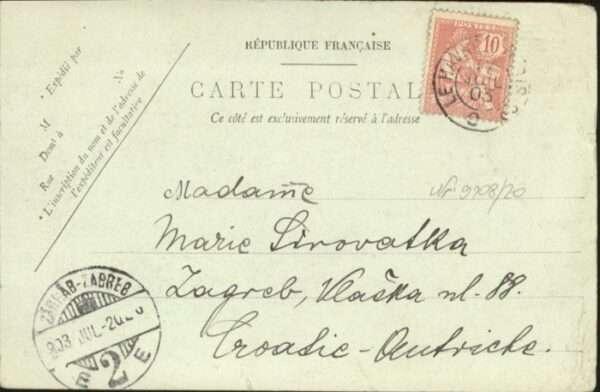 RÉPUBLIQUE FRANÇAISE
CARTE POSTAL
Ce côté est exclusivement réservé à l'adresse
Expédié par
M
No
Demt à
Rue
*L'inscription du nom et de l'adresse de
l'expéditeur est facultative
10
LE HAVRE
JUIL
03
Madame
Marie Sirovatka
Zagreb, Vlaška ul. 88.
Croatie-Autriche.
Nr 9708/20
ZÁGRÁB-ZAGREB
903 JUL
2
E